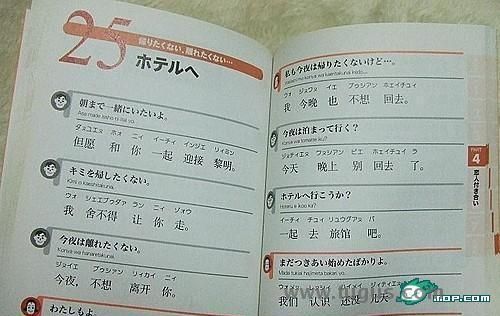 25
帰りたくない、離れたくない…
ホテルへ
朝まで一緒にいたいよ。
Asa made issho ni itai yo.
ダァユエヌ ホォ ニィ イーチィ インジエ リィミン
但愿 和 你 一起 迎接 黎明。
キミを帰したくない。
Kimi o kaeshitakunai.
ウォ シェエブゥダァ ラン ニィ ゾウ
我 舍不得 让 你 走。
今夜は離れたくない。
Konya wa hanaretakunai.
ジョイエ ブゥシアン リィカイ ニィ
今夜, 不想 离开 你。
わたしもよ。
私も今夜は帰りたくないけど…。
Watashi mo konya wa kaeritakunai kedo...
ウォ ジェヌワヌ イエ ブゥシアン ホェイチュイ
我 今晚 也 不想 回去。
今夜は泊まって行く?
Konya wa tomatte iku?
ジェティイエヌ ワヌシアン ビエ ホェイチュイ ラ
今天 晚上 别 回去 了。
ホテルへ行こうか?
Hoteru e ikoo ka?
イーチィ チュイ リュウグアヌ バ
一起 去 旅馆 吧。
まだつきあい始めたばかりよ。
Mada tsukiai hajimeta bakari yo.
我们 认识 还没 几天
PART
4
恋人付き合い